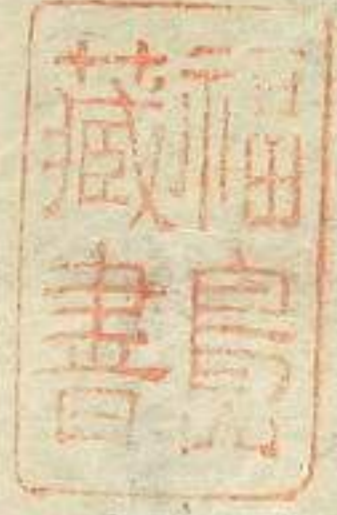 福島
藏書